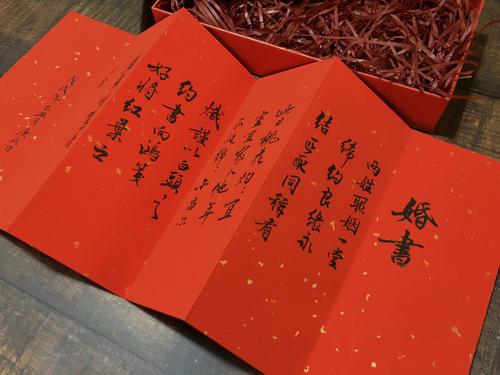 婚書
两姓聯姻一堂
缔約良缘永
结匹配同稱看
此日桃花灼灼宜
室宜家卜他年
瓜瓞绵绵尔昌尔
熾謹以白頭之
約書向鴻箋
好將紅葉之
戊戌年